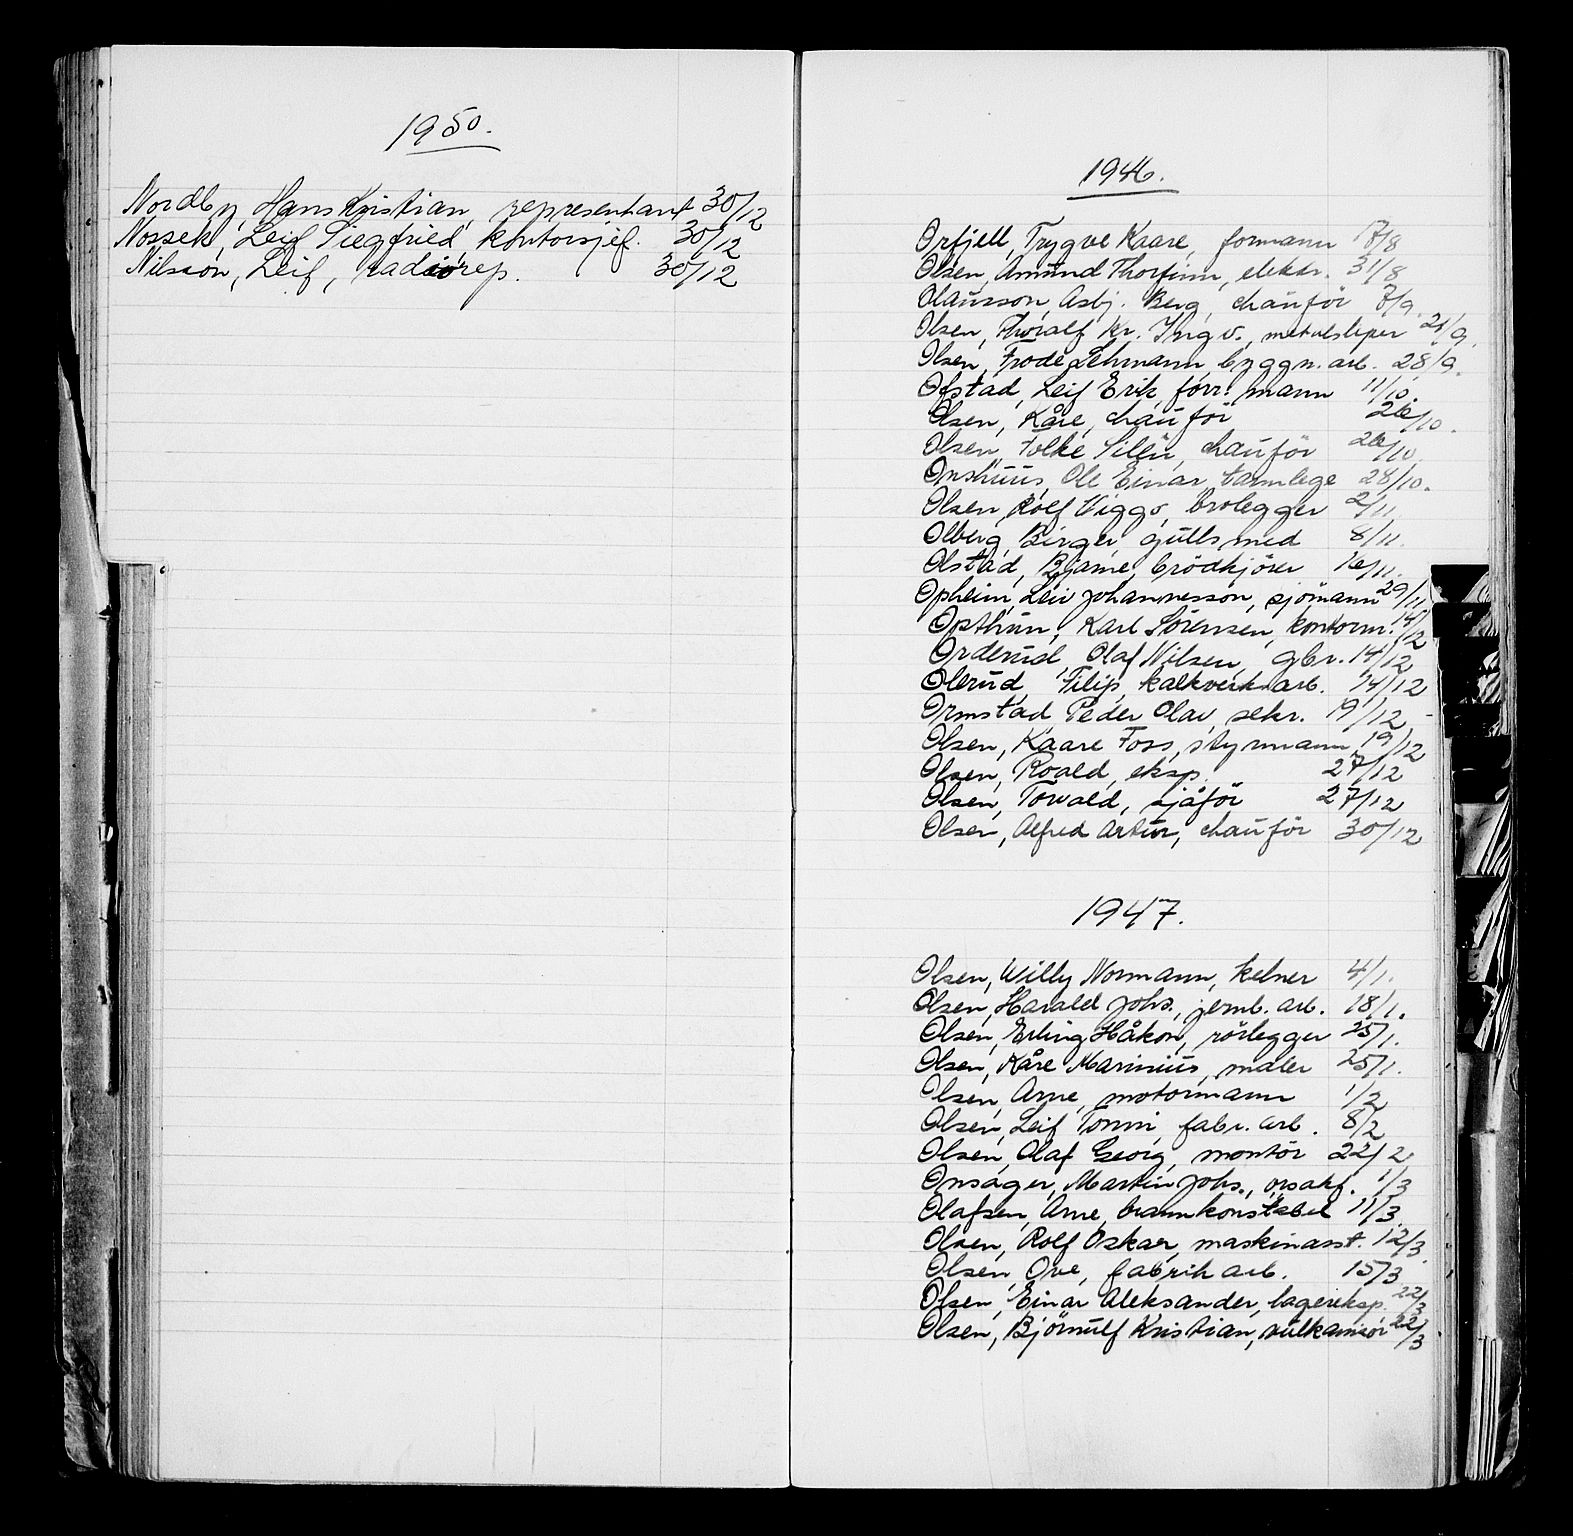 1950.
Nordby, Hans Kristian, representant 30/12
Nossek, Leif Siegfried, kontorsjef. 30/12
Nilsson, Leif, radiorep. 30/12
1946.
Orfjell, Trygve Kaare, formann 17/8
Olsen, Amund Thorfinn, elektr. 31/8
Olausson, Asbj. Berg, chauför 7/9.
Olsen, Thoralf Kr. Ingv., metalsliper 21/9.
Olsen, Frode Lehmann, byggn. arb. 28/9.
Ofstad, Leif Erik, forr. mann 11/10.
Olsen, Kåre, chauför 26/10.
Olsen, Folke Silén, chauför 26/10.
Onshuus, Ole Einar, tannlege 28/10.
Olsen, Rolf Viggo, brolegger 2/11.
Olberg, Birger, gullsmed 8/11.
Olstad, Bjarne, brödkjörer 16/11.
Opheim, Leiv Johannesson, sjömann 29/11.
Opthun, Karl Sörensen, kontorm. 14/12
Orderud, Olaf Nilsen, gbr. 14/12
Olerud, Filip, kalkverk arb. 14/12
Ormstad, Peder Olav, sekr. 19/12
Olsen, Kaare Foss, styrmann 19/12
Olsen, Roald, eksp. 27/12
Olsen, Torvald, sjåför 27/12
Olsen, Alfred Artur, chauför 30/12
1947.
Olsen, Willy Normann, kelner 4/1.
Olsen, Harald Johs., jernb. arb. 18/1.
Olsen, Erling Håkon, rörlegger 25/1.
Olsen, Kåre Marinius, maler 25/1.
Olsen, Arne, motormann 1/2
Olsen, Leif Tommi, fabr. arb. 8/2
Olsen, Olaf Georg, montör 22/2
Onsager, Martin Johs., orsakf. 1/3
Olafsen, Arne, brannkonstabel 11/3.
Olsen, Rolf Oskar, maskinasst. 12/3
Olsen, Ove, fabrik arb. 15/3
Olsen, Einar Aleksander, lagereksp. 22/3
Olsen, Björnulf Kristian, vulkanisör 22/3